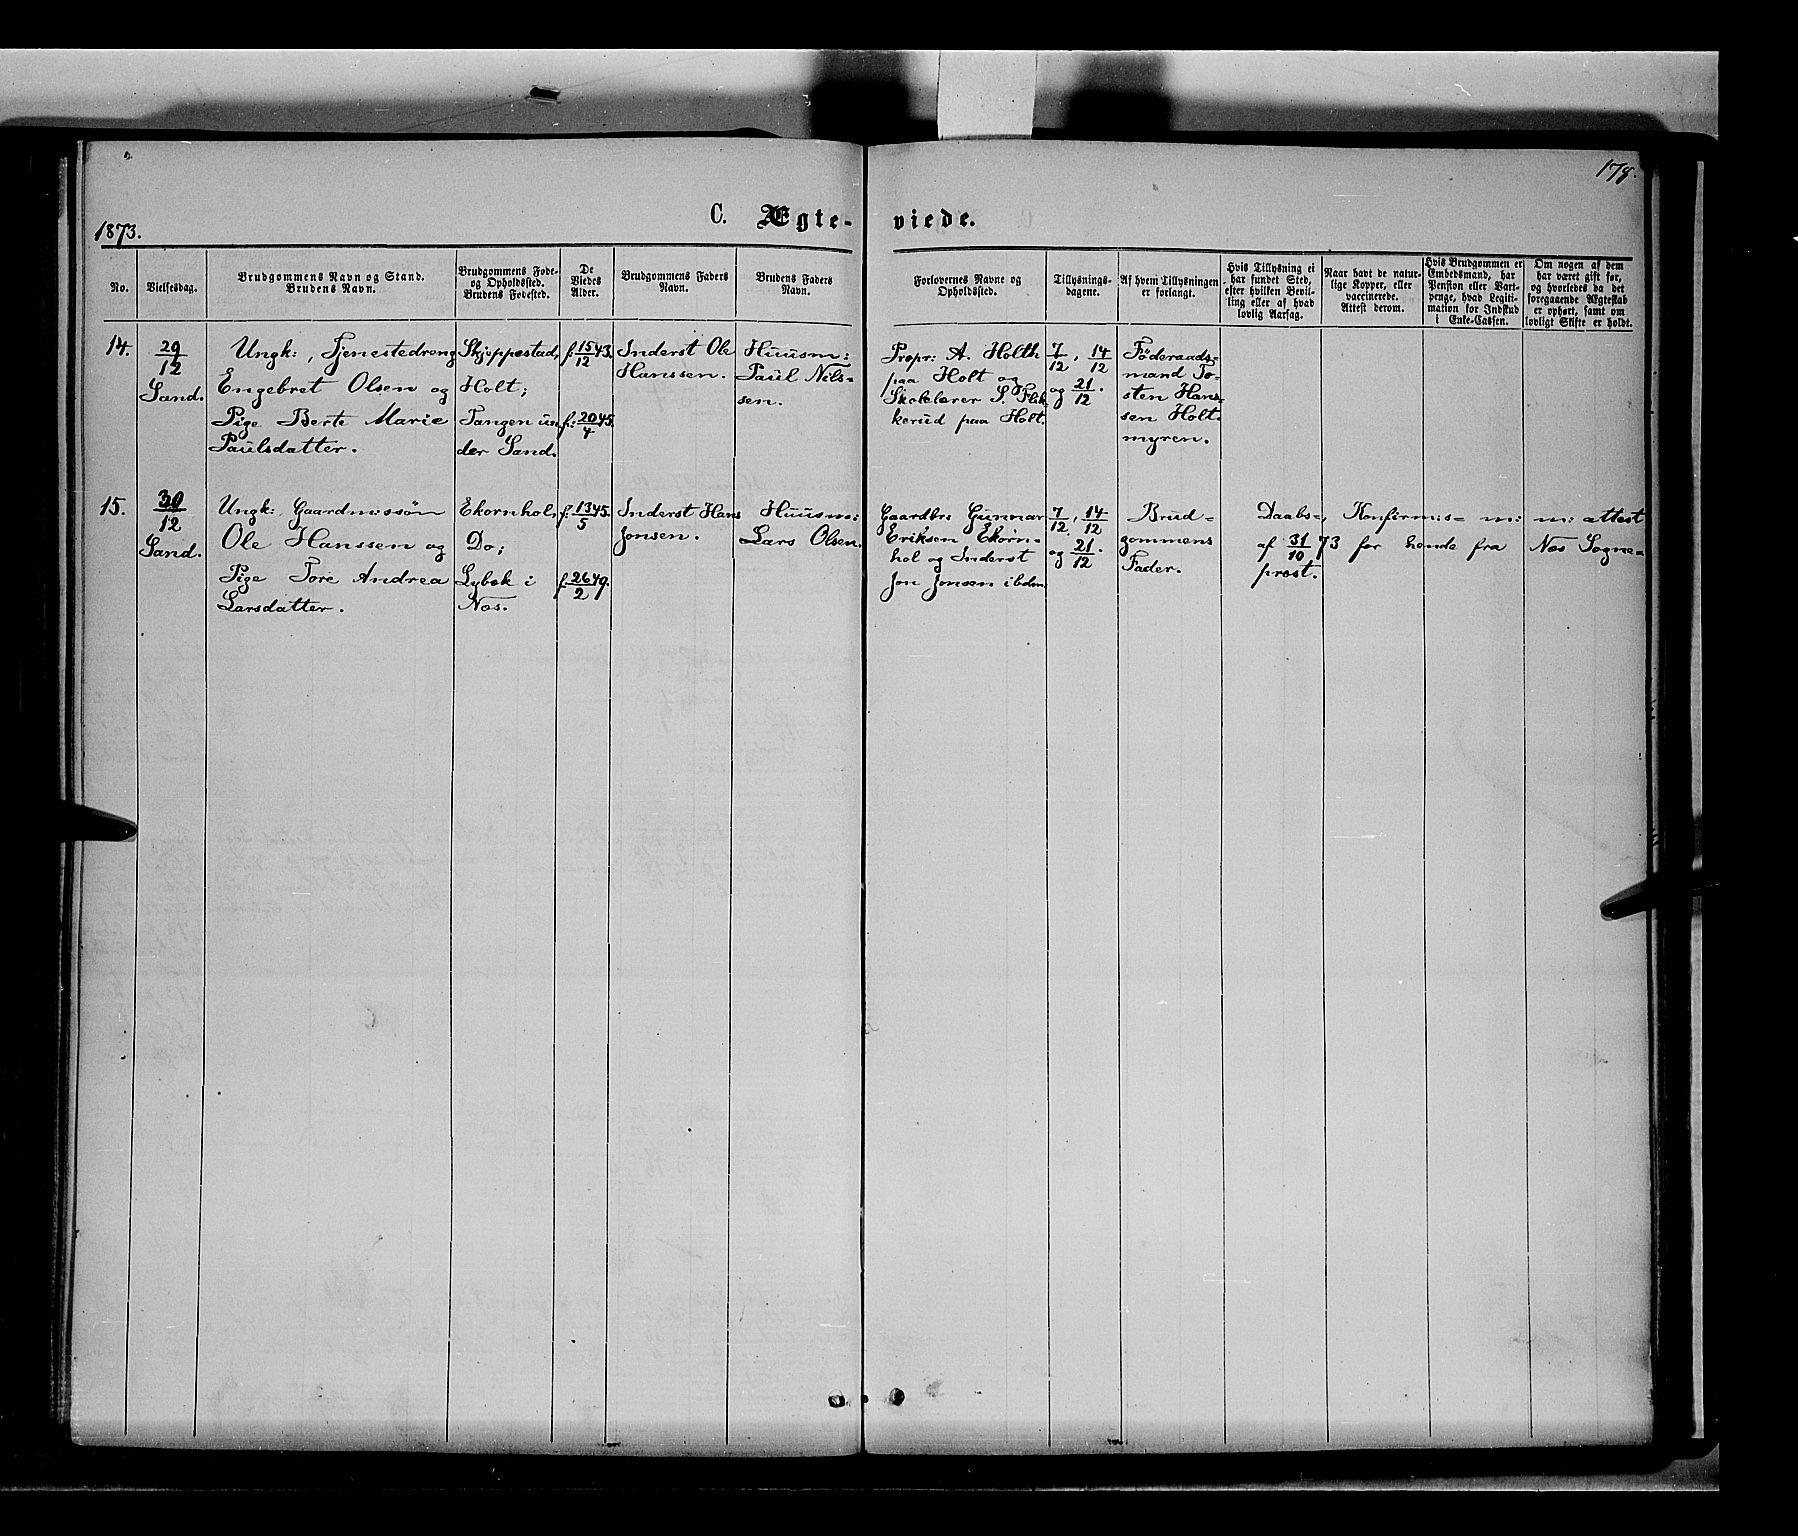 178.
C. Ægte-
viede.
1873.
No.
Vielsesdag.
Brudgommens Navn og Stand.
Brudens Navn.
Brudgommens Føde-
og Opholdssted.
Brudens Fødested.
De
Viedes
Alder.
Brudgommens Faders
Navn.
Brudens Faders
Navn.
Forlovernes Navne og
Opholdssted.
Tillysnings-
dagene.
Af hvem Tillysningen
er forlangt.
Hvis Tillysning ei
har fundet Sted,
efter hvilken Bevil-
ling eller af hvad
lovlig Aarsag.
Naar havt de natur-
lige Kopper, eller
vaccinerede.
Attest derom.
Hvis Brudgommen er
Embedsmand, har
Pension eller Vart-
penge, hvad Legiti-
mation for Indskud
i Enke-Cassen.
Om nogen af dem
har været gift før,
og hvorledes da det
foregaaende Ægteskab
er ophørt, samt om
lovligt Skifte er holdt.
14.
29/12
Sand.
Ungk:, Tjenestedreng
Engebret Olsen og
Pige Berte Marie
Paulsdatter.
Skjeppestad,
Holt;
Tangen un-
der Sand.
f. 15/12 43.
f. 20/4 45.
Inderst Ole
Hanssen.
Huusm:
Paul Nils-
sen.
Propr: A. Holth
paa Holt og
Skolelærer S. Flik-
kerud paa Holt.
7/12, 14/12
og 21/12.
Føderaads-
mand To-
sten Hans-
sen Holt-
myren.
15.
30/12
Sand.
Ungk: Gaardm:ssøn
Ole Hanssen og
Pige Tore Andrea
Larsdatter.
Ekornhol,
Do;
Lybek i
Næs.
f. 13/5 45.
f. 26/2 49.
Inderst Hans
Jonsen.
Huusm:
Lars Olsen.
Gaardbr Gunnar
Eriksen Ekorn-
hol og Inderst
Jon Jonsen ibdm.
7/12, 14/12
og 21/12.
Brud-
gommens
Fader.
Daabs-, Konfirm:s- m: m: attest
af 31/10 73 for hende fra Næs Sogne-
præst.